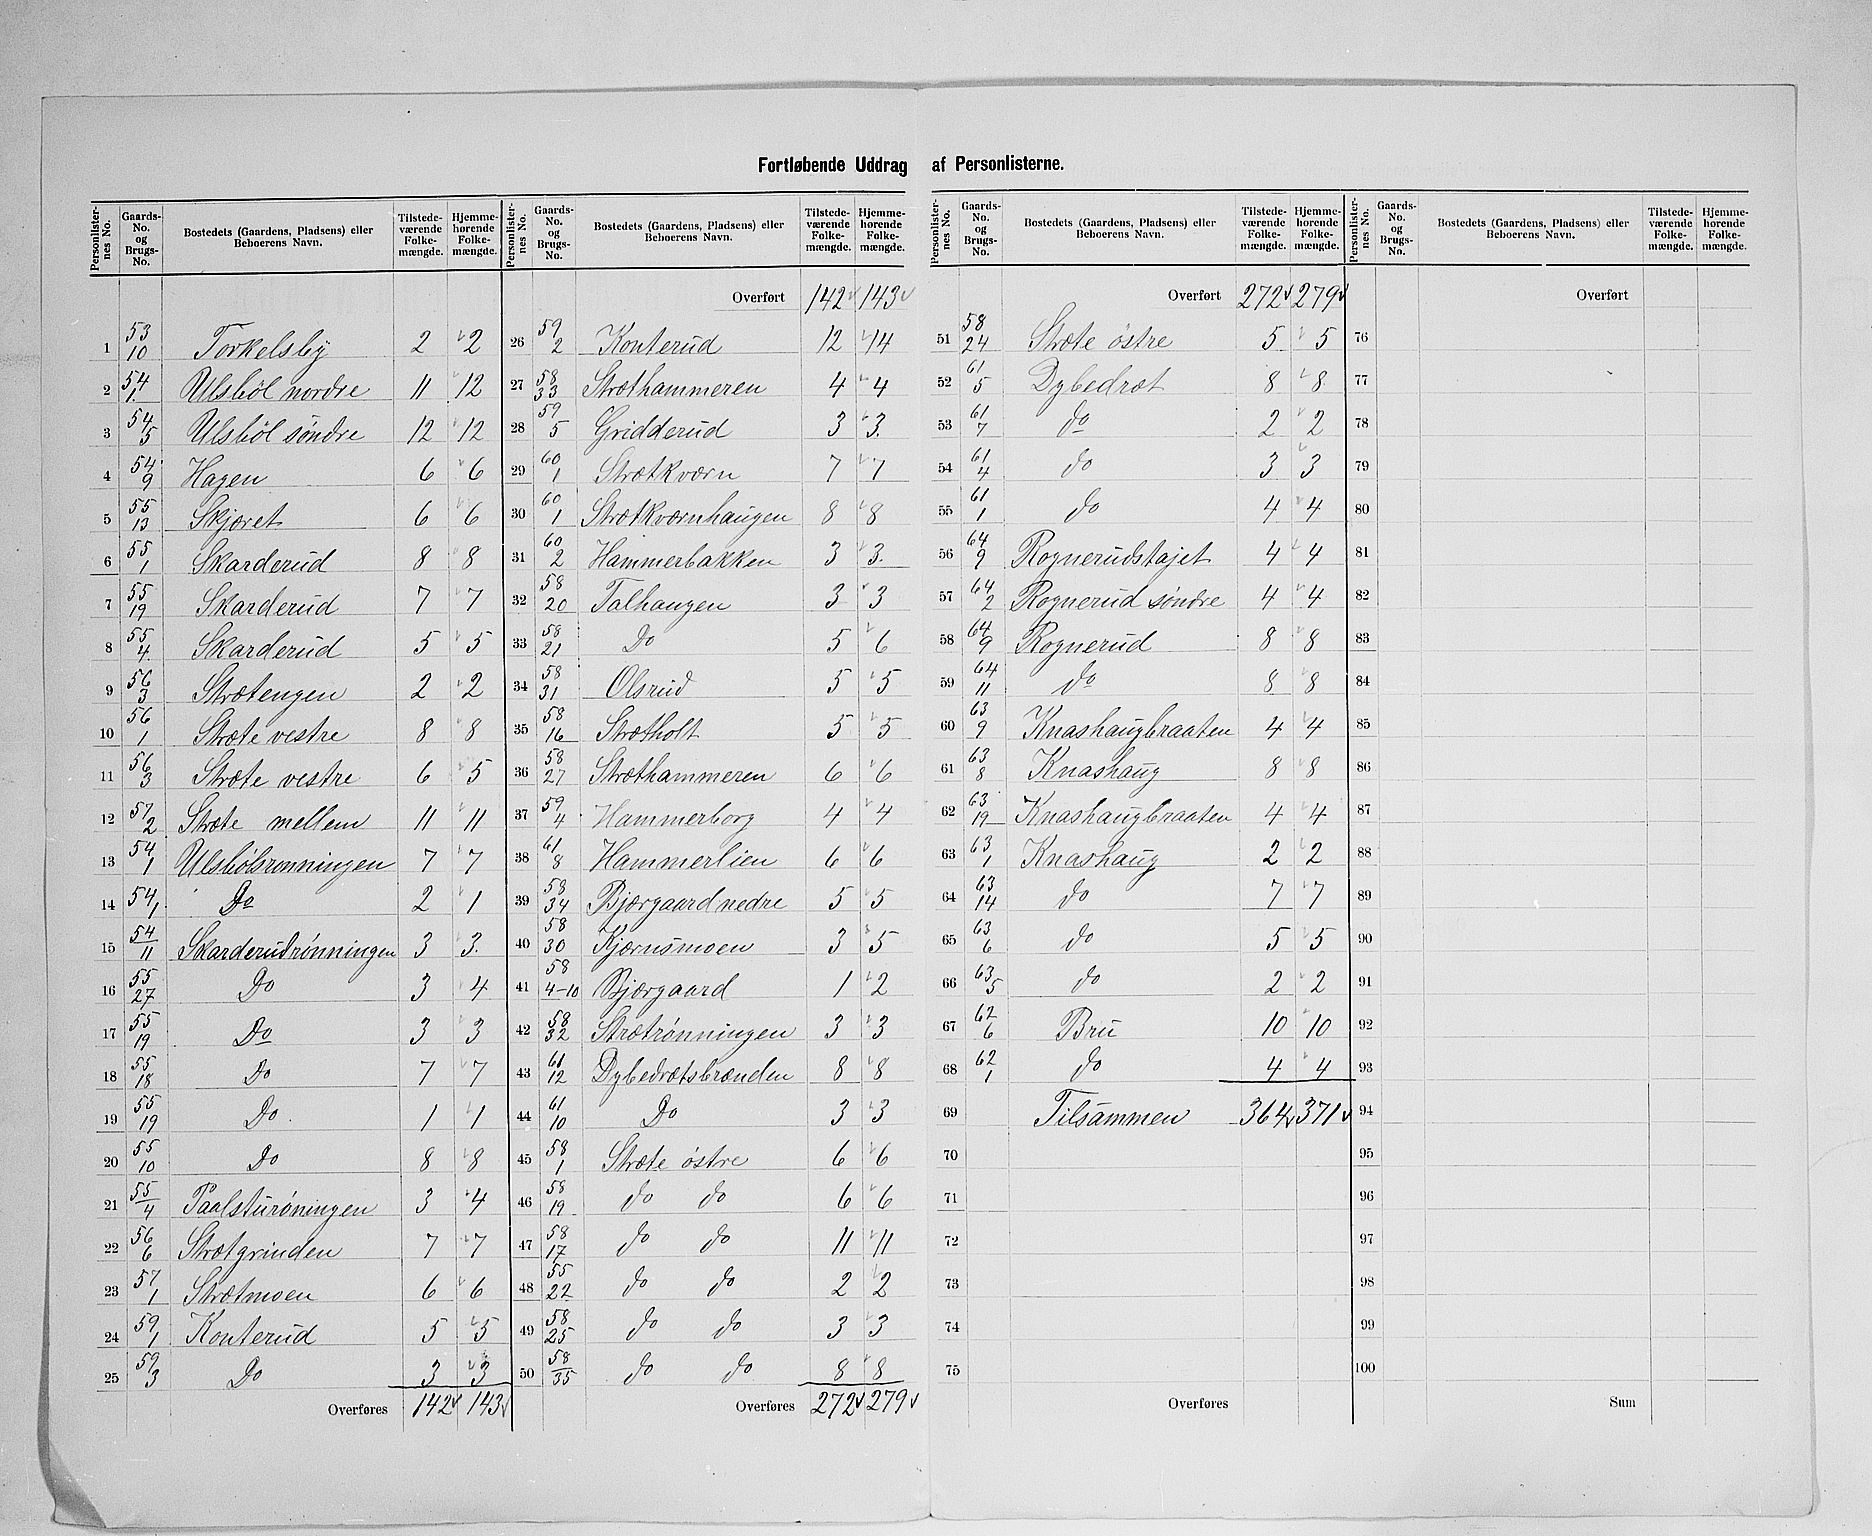 Fortløbende Uddrag af Personlisterne.
Personlisternes No. | Gaards-No. og Brugs-No. | Bostedets (Gaardens, Pladsens) eller Beboerens Navn. | Tilstedeværende Folkemængde. | Hjemmehørende Folkemængde.
1 | 53/10 | Torkelsby | 2 | 2
2 | 54/1. | Ulsböl nordre | 11 | 12
3 | 54/5 | Ulsböl söndre | 12 | 12
4 | 54/9 | Hagen | 6 | 6
5 | 55/13 | Skjæret | 6 | 6
6 | 55/1 | Skarderud | 8 | 8
7 | 55/19 | Skarderud | 7 | 7
8 | 55/4. | Skarderud | 5 | 5
9 | 56/3 | Strætengen | 2 | 2
10 | 56/1 | Stræte vestre | 8 | 8
11 | 56/3 | Stræte vestre | 6 | 5
12 | 57/2 | Stræte mellem | 11 | 11
13 | 54/1 | Ulsbölsrønningen | 7 | 7
14 | 54/1 | Do | 2 | 1
15 | 54/11 | Skarderudrønningen | 3 | 3.
16 | 55/27 | Do | 3 | 4
17 | 55/19 | Do | 3 | 3
18 | 55/18 | Do | 7 | 7
19 | 55/19 | Do | 1 | 1
20 | 55/10 | Do | 8 | 8
21 | 55/4 | Paalsturöningen | 3 | 4
22 | 56/6 | Strætgrinden | 7 | 7
23 | 57/1 | Strætmoen | 6 | 6
24 | 59/1 | Konterud | 5 | 5
25 | 59/3 | Do | 3 | 3
Overføres | 142 | 143
Personlisternes No. | Gaards-No. og Brugs-No. | Bostedets (Gaardens, Pladsens) eller Beboerens Navn. | Tilstedeværende Folkemængde. | Hjemmehørende Folkemængde.
Overført | 142 | 143
26 | 59/2 | Konterud | 12 | 14
27 | 58/33 | Stræthammeren | 4 | 4
28 | 59/5 | Gridderud | 3 | 3.
29 | 60/1 | Strætkværn | 7 | 7
30 | 60/1 | Strætkværnhaugen | 8 | 8
31 | 60/2 | Hammerbakken | 3 | 3.
32 | 58/20 | Talhaugen | 3 | 3
33 | 58/21 | Do | 5 | 6
34 | 58/31 | Olsrud | 5 | 5
35 | 58/16 | Strætholt | 5 | 5
36 | 58/27 | Stræthammeren | 6 | 6
37 | 59/4 | Hammerborg | 4 | 4
38 | 61/8 | Hammerlien | 6 | 6
39 | 58/34 | Bjærgaard nedre | 5 | 5
40 | 58/30 | Kjærnsmoen | 3 | 5
41 | 58/4-10 | Bjærgaard | 1 | 2
42 | 58/32 | Strætrønningen | 3 | 3
43 | 61/12 | Dybedrætsbrænden | 8 | 8
44 | 61/10 | Do | 3 | 3
45 | 58/1 | Stræte østre | 6 | 6
46 | 58/19 | do do | 6 | 6
47 | 58/17 | do do | 11 | 11
48 | 55/22 | do do | 2 | 2
49 | 58/25 | do do | 3 | 3
50 | 58/35 | do do | 8 | 8
Overføres | 272 | 279
Personlisternes No. | Gaards-No. og Brugs-No. | Bostedets (Gaardens, Pladsens) eller Beboerens Navn. | Tilstedeværende Folkemængde. | Hjemmehørende Folkemængde.
Overført | 272 | 279
51 | 58/24 | Stræte østre | 5 | 5
52 | 61/5 | Dybedræt | 8 | 8
53 | 61/7 | do | 2 | 2
54 | 61/4 | do | 3 | 3
55 | 61/1 | do | 4 | 4
56 | 64/9 | Rognerudstajet | 4 | 4
57 | 64/2 | Rognerud söndre | 4 | 4
58 | 64/9 | Rognerud | 8 | 8
59 | 64/11 | do | 8 | 8
60 | 63/9 | Knashaugbraaten | 4 | 4
61 | 63/8 | Knashaug | 8 | 8
62 | 63/19 | Knashaugbraaten | 4 | 4
63 | 63/1 | Knashaug | 2 | 2
64 | 63/14 | do | 7 | 7
65 | 63/6 | do | 5 | 5
66 | 63/5 | do | 2 | 2
67 | 62/6 | Bru | 10 | 10
68 | 62/1 | do | 4 | 4
69 | Tilsammen | 364 | 371
70
71
72
73
74
75
Overføres
Personlisternes No. | Gaards-No. og Brugs-No. | Bostedets (Gaardens, Pladsens) eller Beboerens Navn. | Tilstedeværende Folkemængde. | Hjemmehørende Folkemængde.
Overført
76
77
78
79
80
81
82
83
84
85
86
87
88
89
90
91
92
93
94
95
96
97
98
99
100
Sum